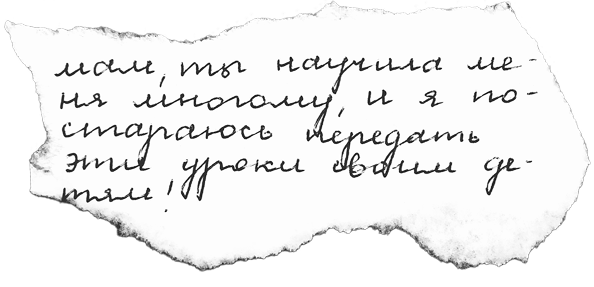 мам, ты научила ме-
ня многому, и я по-
стараюсь передать
эти уроки своим де-
тям!